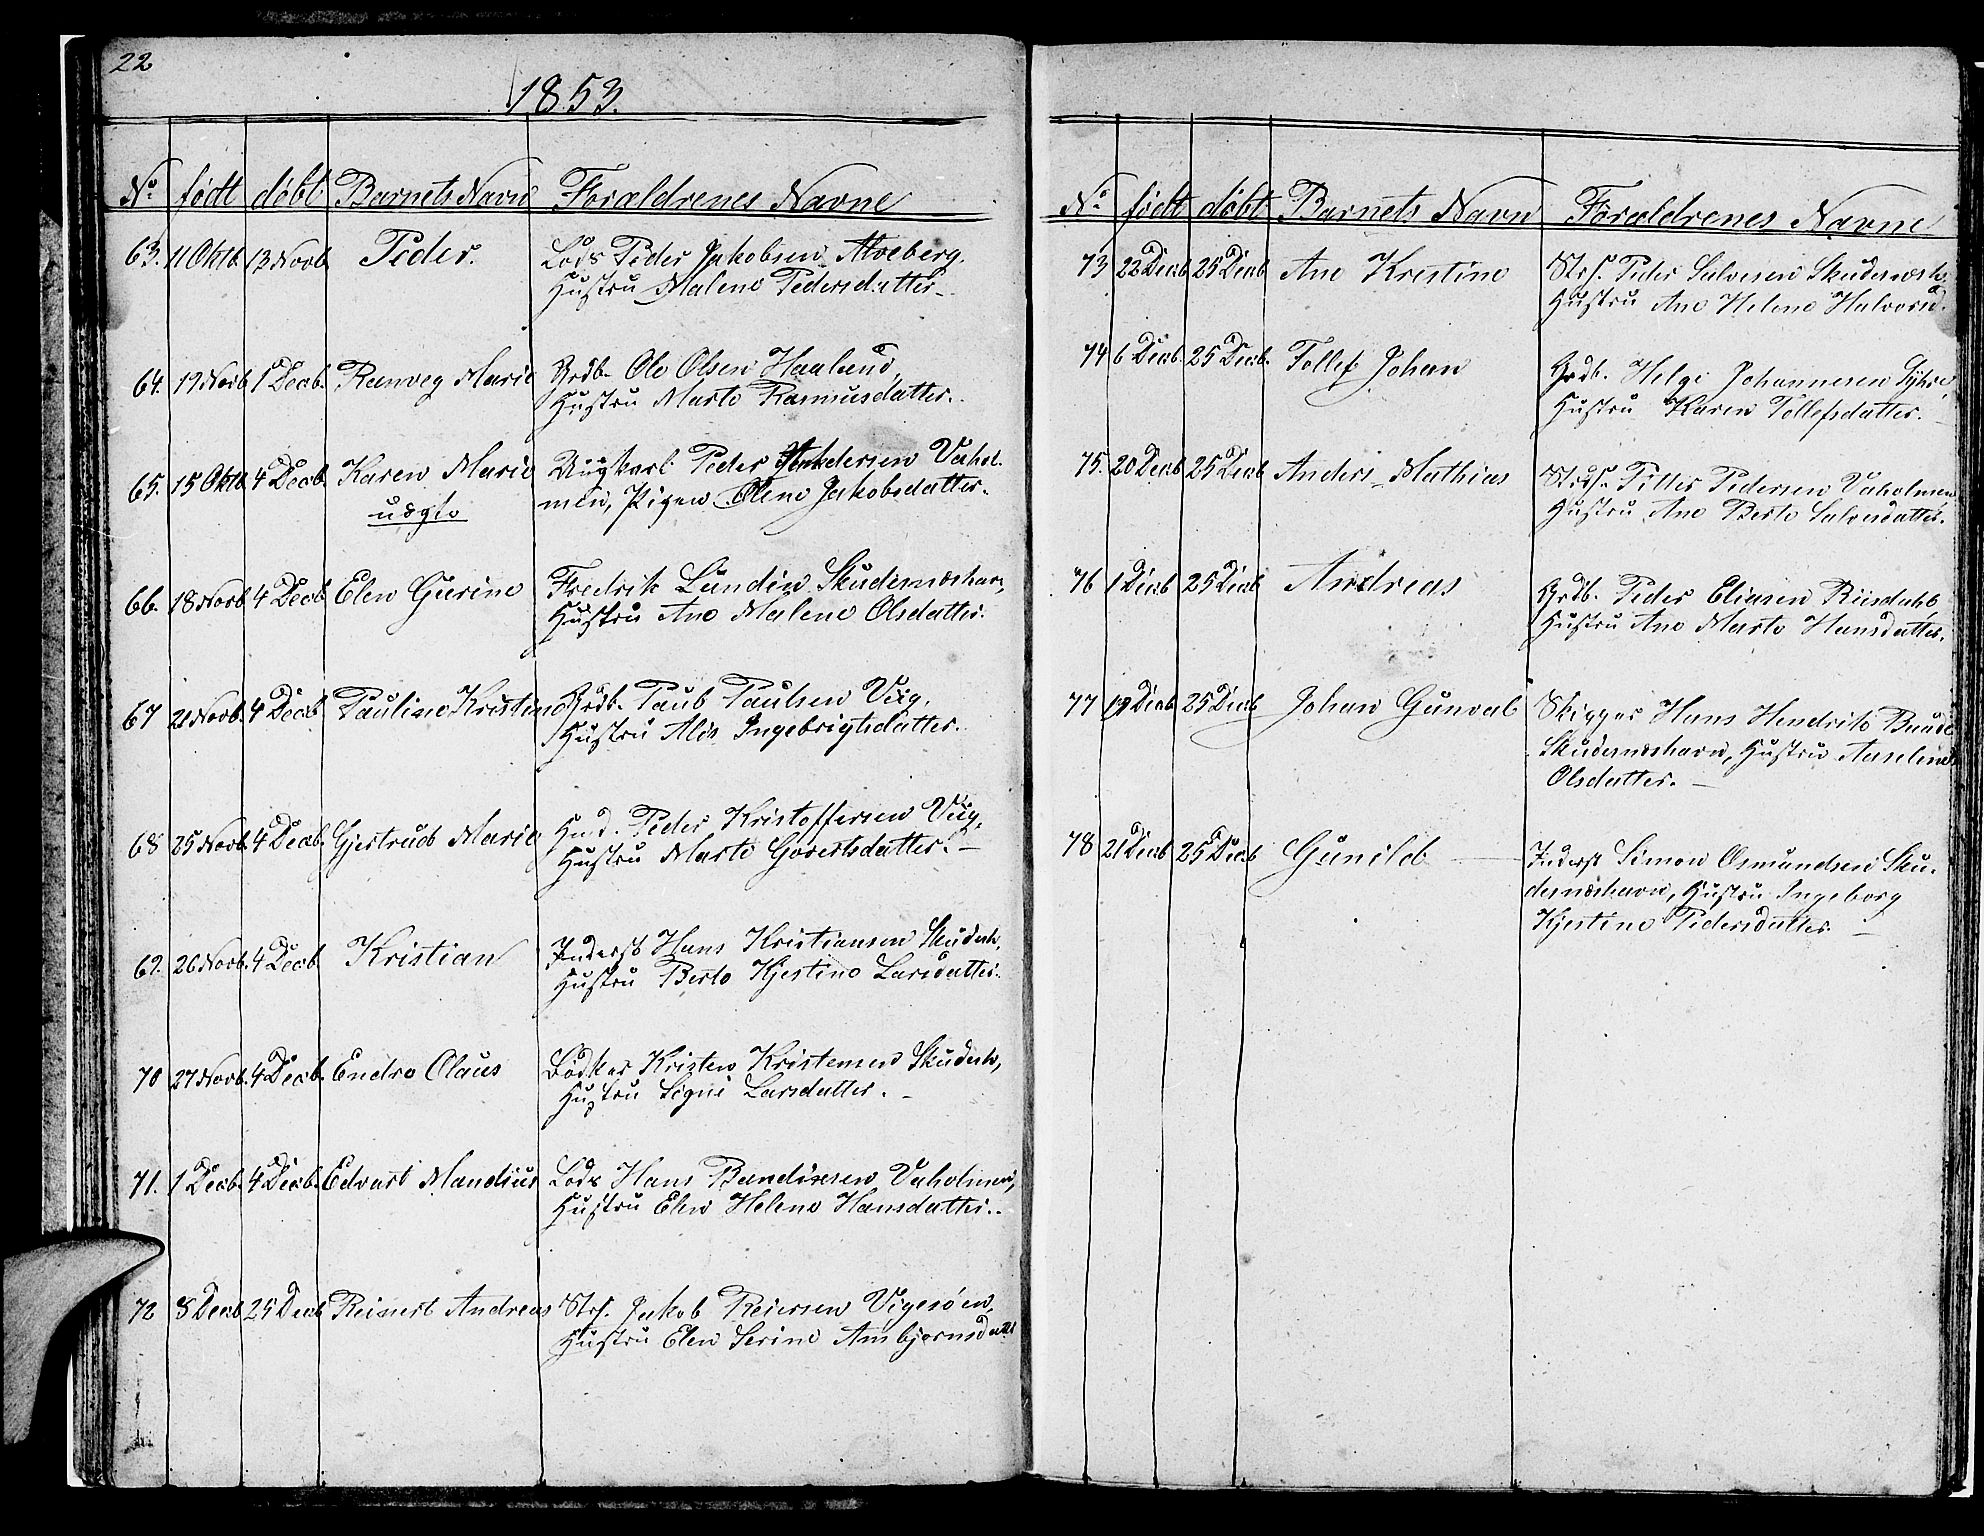 22
1853.
No. født døbt Barnets Navn Forældrenes Navne
63. 11 Oktb. 13 Novb. Peder. Lods Peder Jakobsen Alveberg.
Hustru Malene Pedersdatter
64. 19 Novb. 1 Decb. Ranveg Marie Grdb. Ole Olsen Haaland,
Hustru Marte Rasmusdatter.
65. 15 Oktb. 4 Decb. Karen Marie Ungkarl Peder Andersen Vahol-
uægte men, Pigen Olene Jakobsdatter.
66. 18 Novb. 4 Decb. Elen Gurine Fredrik Lundin Skudesnæshavn,
Hustru Ane Malene Olsdatter.
67 21 Novb. 4 Decb. Pauline Kristine Grdb. Paul Paulsen Viig,
Hustru Alis Ingebrigtsdatter.
68 25 Novb. 4 Decb. Gjertrud Marie Hmd. Peder Kristoffersen Viig,
Hustru Marte Govertsdatter. –
69. 26 Novb. 4 Decb. Kristian Inderst Hans Kristiansen Skudesh,
Hustru Berte Kjestine Larsdatter.
70 27 Novb. 4 Decb. Endre Olaus Bødker Kristen Kristensen Skudesh,
Hustru Signi Larsdatter. –
71. 1 Decb. 4 Decb. Edvart Mandius Lods Hans Bendixsen Vaholmen,
Hustru Elen Helene Hansdatter.
72 8 Decb 25 Decb Reinert Andreas Strs. Jakob Reiersen Vigesøen,
Hustru Elen Serine Ambjørnsdatt
No. født døbt Barnets Navn Forældrenes Navne
73 22 Decb 25 Decb Ane Kristine Strs. Peder Salvesen Skudesnæsh.
Hustru Ane Helene Halvorsd.
74 6 Decb. 25 Decb. Tollef Johan Grdb. Helge Johannesen
Hustru Karen Tollefsdatter.
75. 20 Decb 25 Decb Anders Mathias Strs. Peder Pedersen Vaholmen
Hustru Ane Berte Salvesdatter.
76 1 Decb 25 Decb Andreas Grdb. Peder Eliasen Riisdahl
Hustru Ane Marte Hansdatter.
77 19 Decb 25 Decb Johan Gunval Skipper Hans Hendrik
Skudesnæshavn, Hustru Aaseline
Olsdatter. –
78 21 Decb 25 Decb Gunild Inderst Simon Osmundsen Sku-
desnæshavn, Hustru Ingeborg
Kjestine Pedersdatter. –